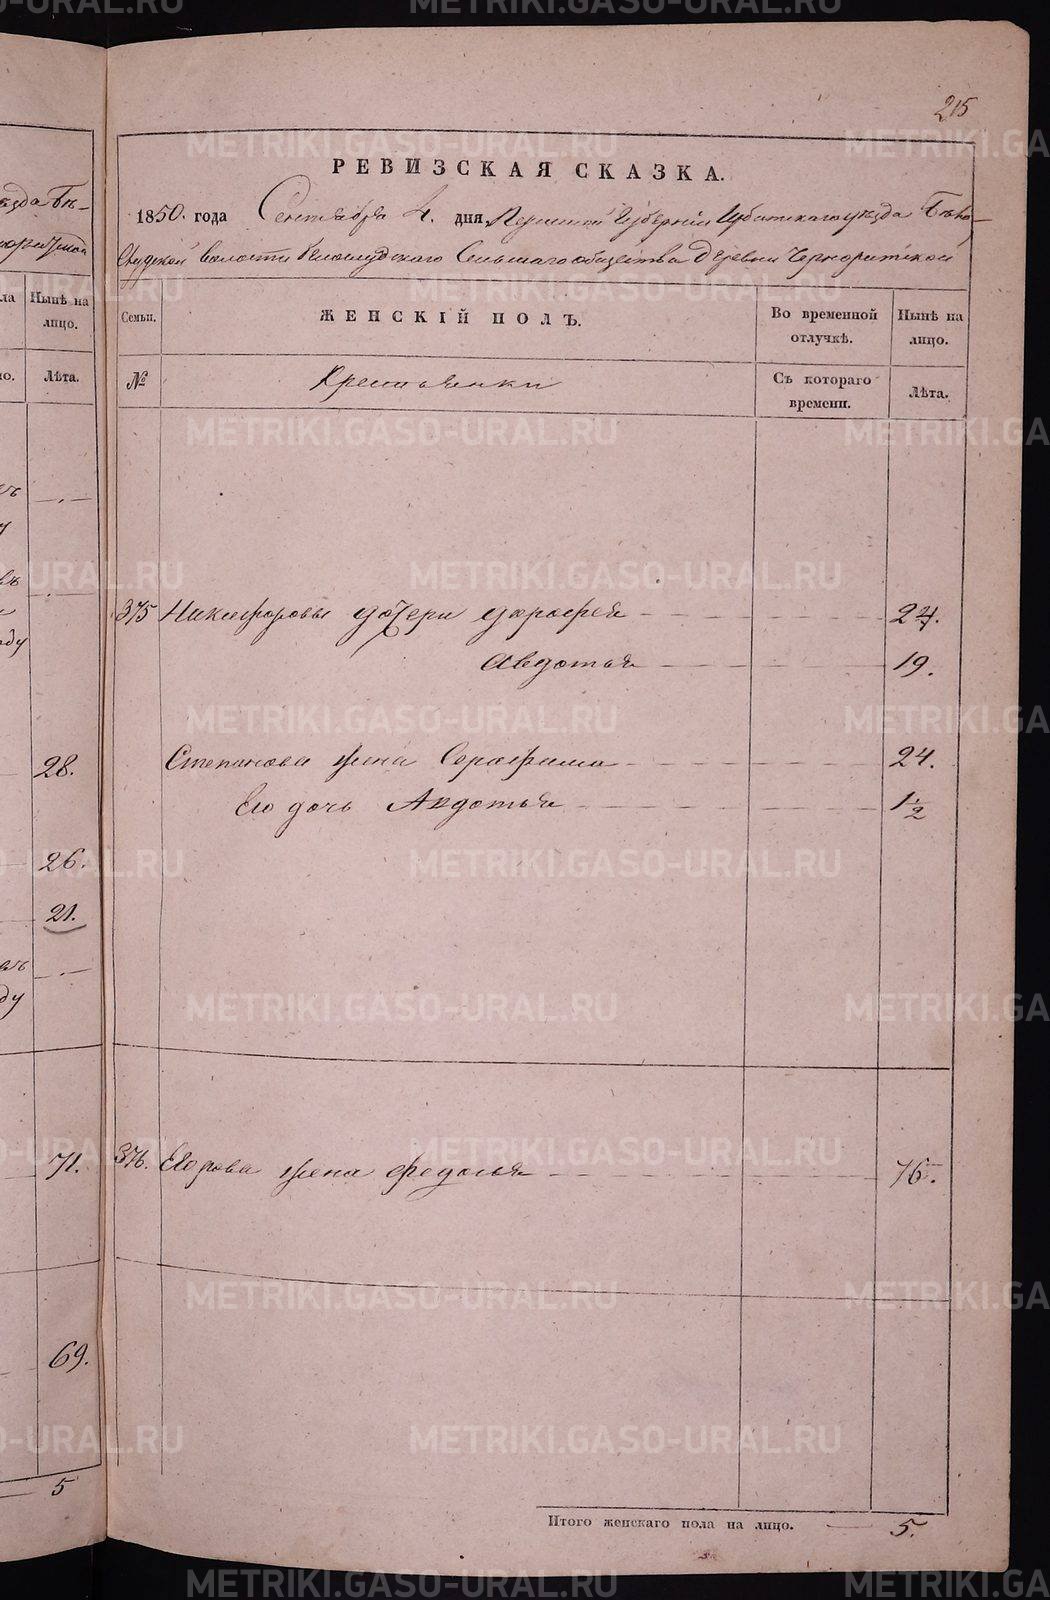 215
РЕВИЗСКАЯ СКАЗКА.
1850. года Сентября 4. дня, Пермской Губерніи Ирбитскаго уѣзда Бѣло-
Слудской волости Белослудскаго Сельскаго общества Деревни
Семьи. ЖЕНСКІЙ ПОЛЪ. Во временной отлучкѣ. Нынѣ на лицо.
№ Крестьянки Съ котораго времени. Лѣта.
375 Никифоровы дочери Дорофея 24.
Авдотья 19.
Степанова жена Серафима 24.
Его дочь Авдотья 1½
376. Егорова жена Федосья 76.
Итого женскаго пола на лицо. 5.
уѣзда Бѣ-
Нынѣ на лицо.
Лѣта.
28.
26.
21.
71.
69.
5
METRIKI.GASO-URAL.RU